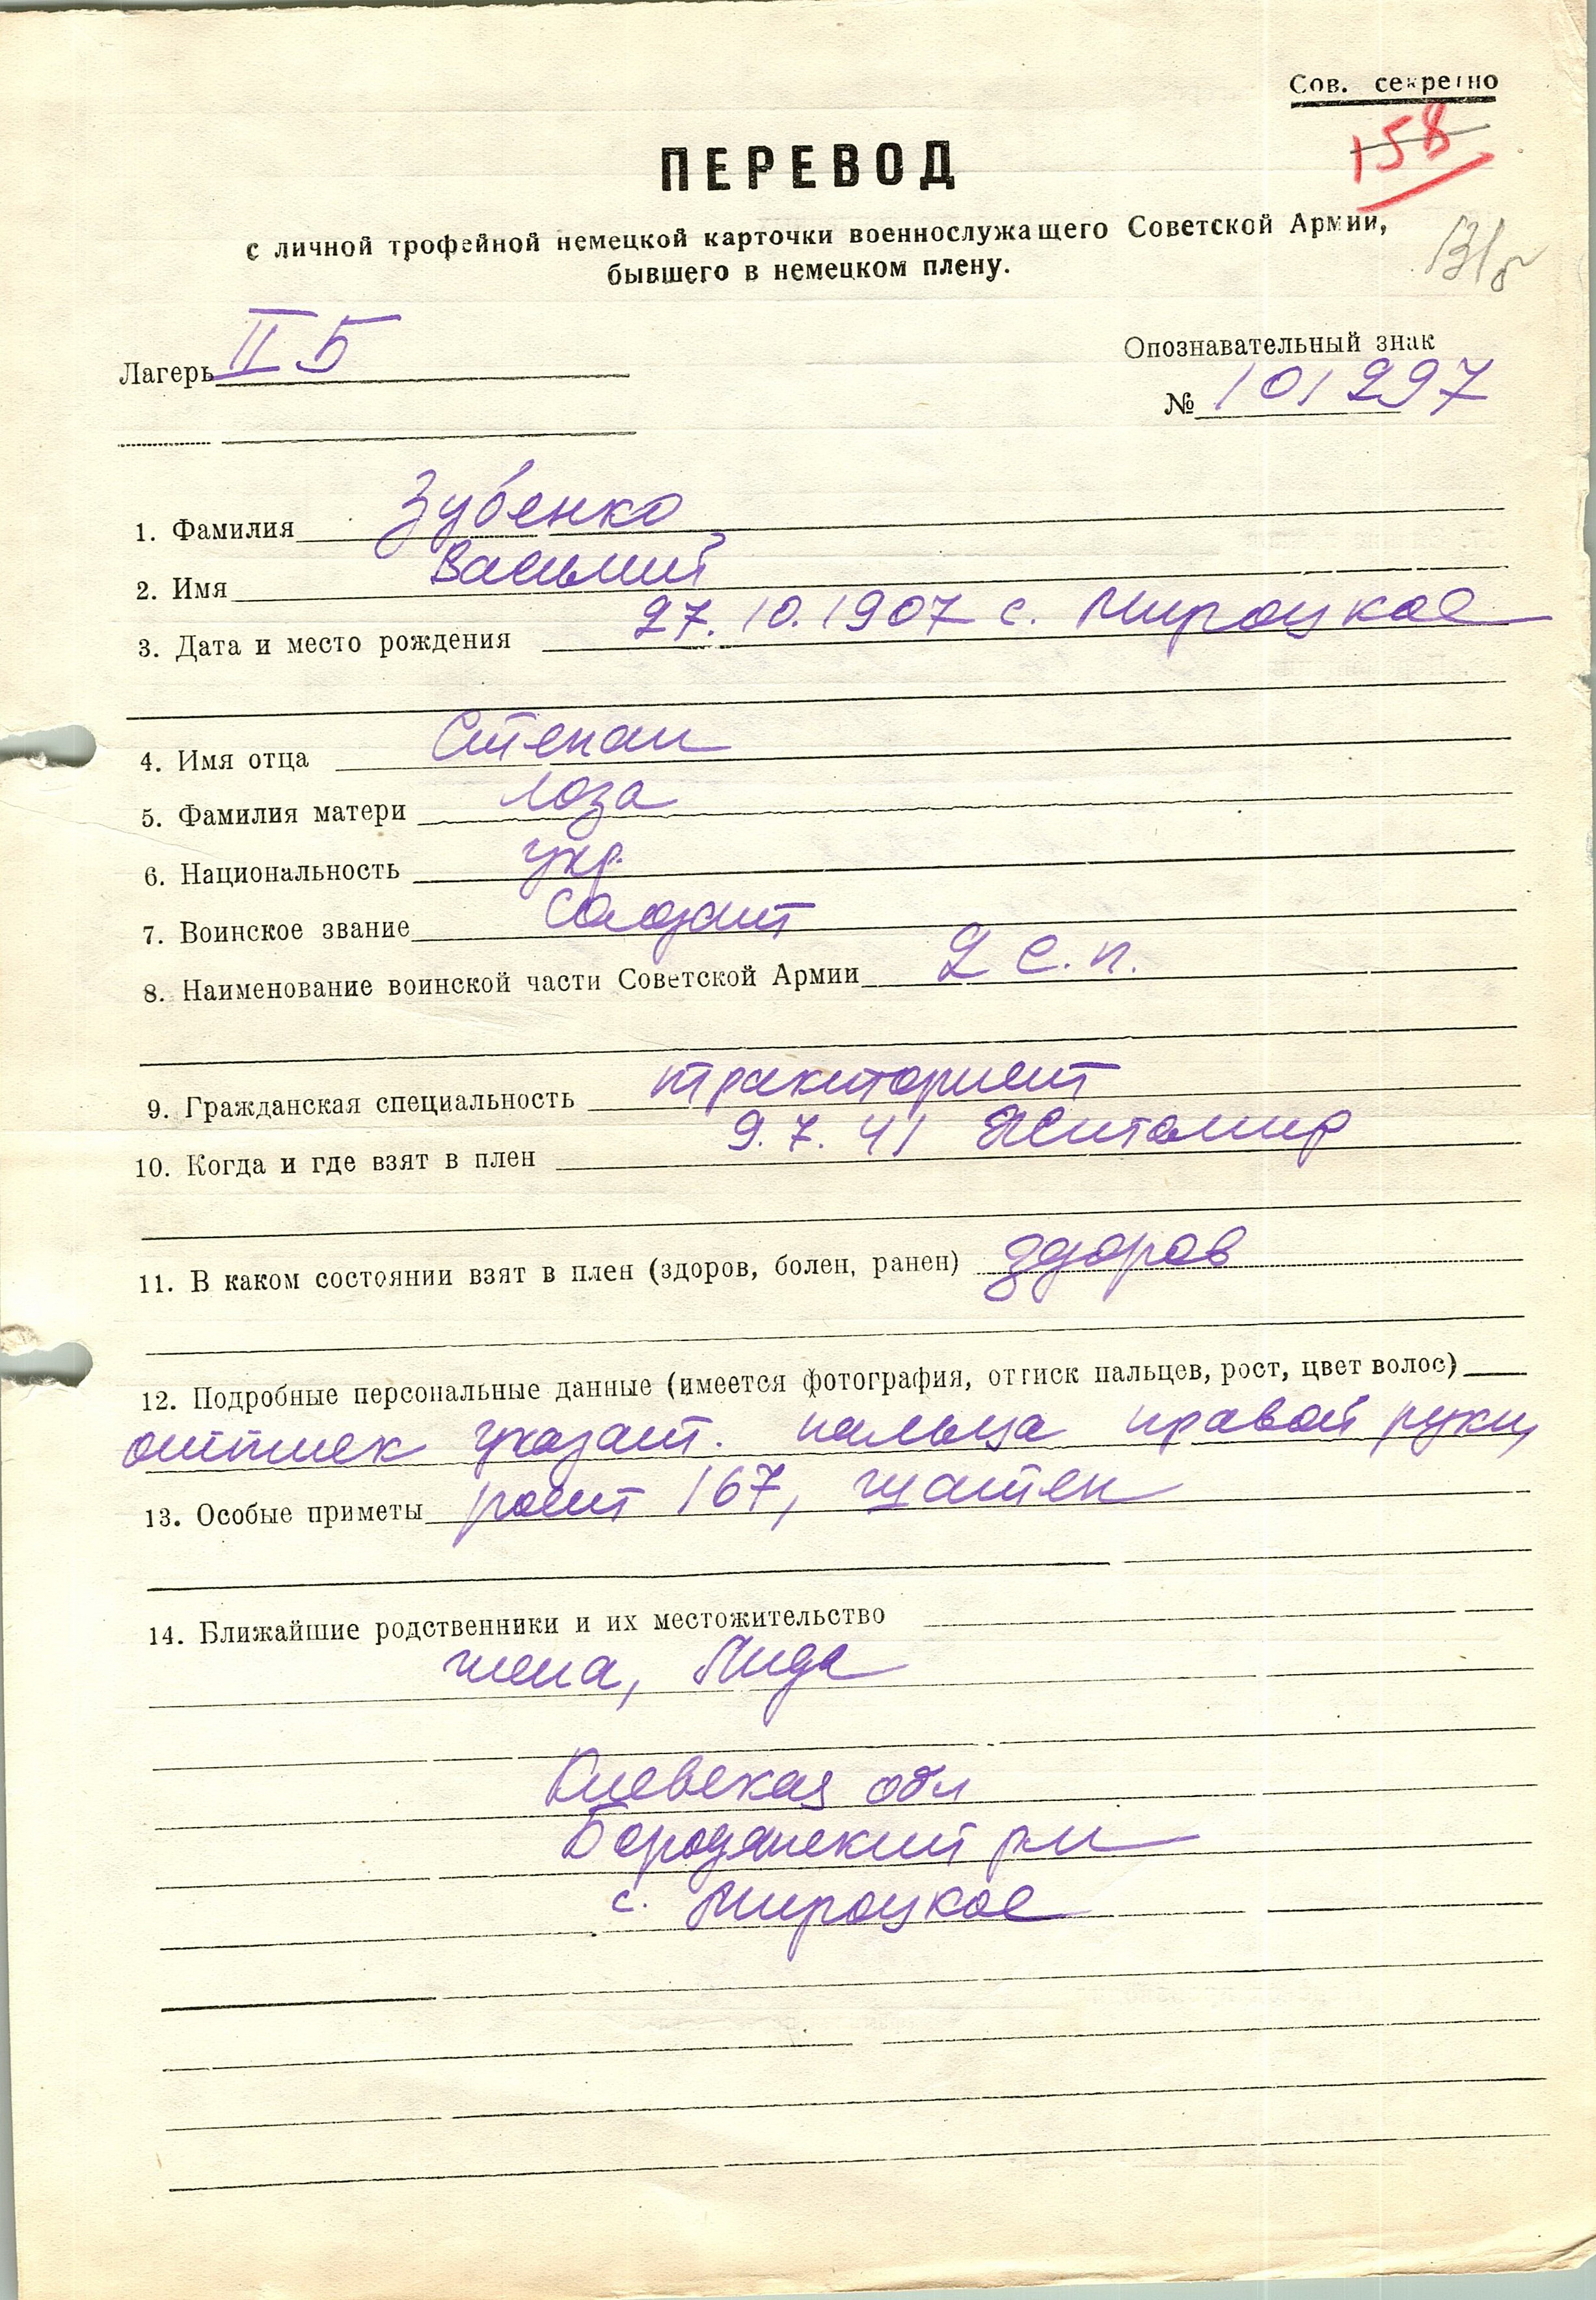 Сов. секретно
158
ПЕРЕВОД
с личной трофейной немецкой карточки военнослужащего Советской Армии,
бывшего в немецком плену.
131/8
Лагерь II Б
Опознавательный знак
№ 101297
1. Фамилия Зубенко
2. Имя Василий
3. Дата и место рождения 27.10.1907 с. Мироцкое
4. Имя отца Степан
5. Фамилия матери Лоза
6. Национальность укр.
7. Воинское звание Солдат
8. Наименование воинской части Советской Армии 2 с.п.
9. Гражданская специальность тракторист
10. Когда и где взят в плен 9.7.41 Житомир
11. В каком состоянии взят в плен (здоров, болен, ранен) здоров
12. Подробные персональные данные (имеется фотография, оттиск пальцев, рост, цвет волос)
оттиск указат. пальца правой руки,
13. Особые приметы рост 167, шатен
14. Ближайшие родственники и их местожительство
жена, Лида
Киевская обл
Бородянский рн
с. Мироцкое